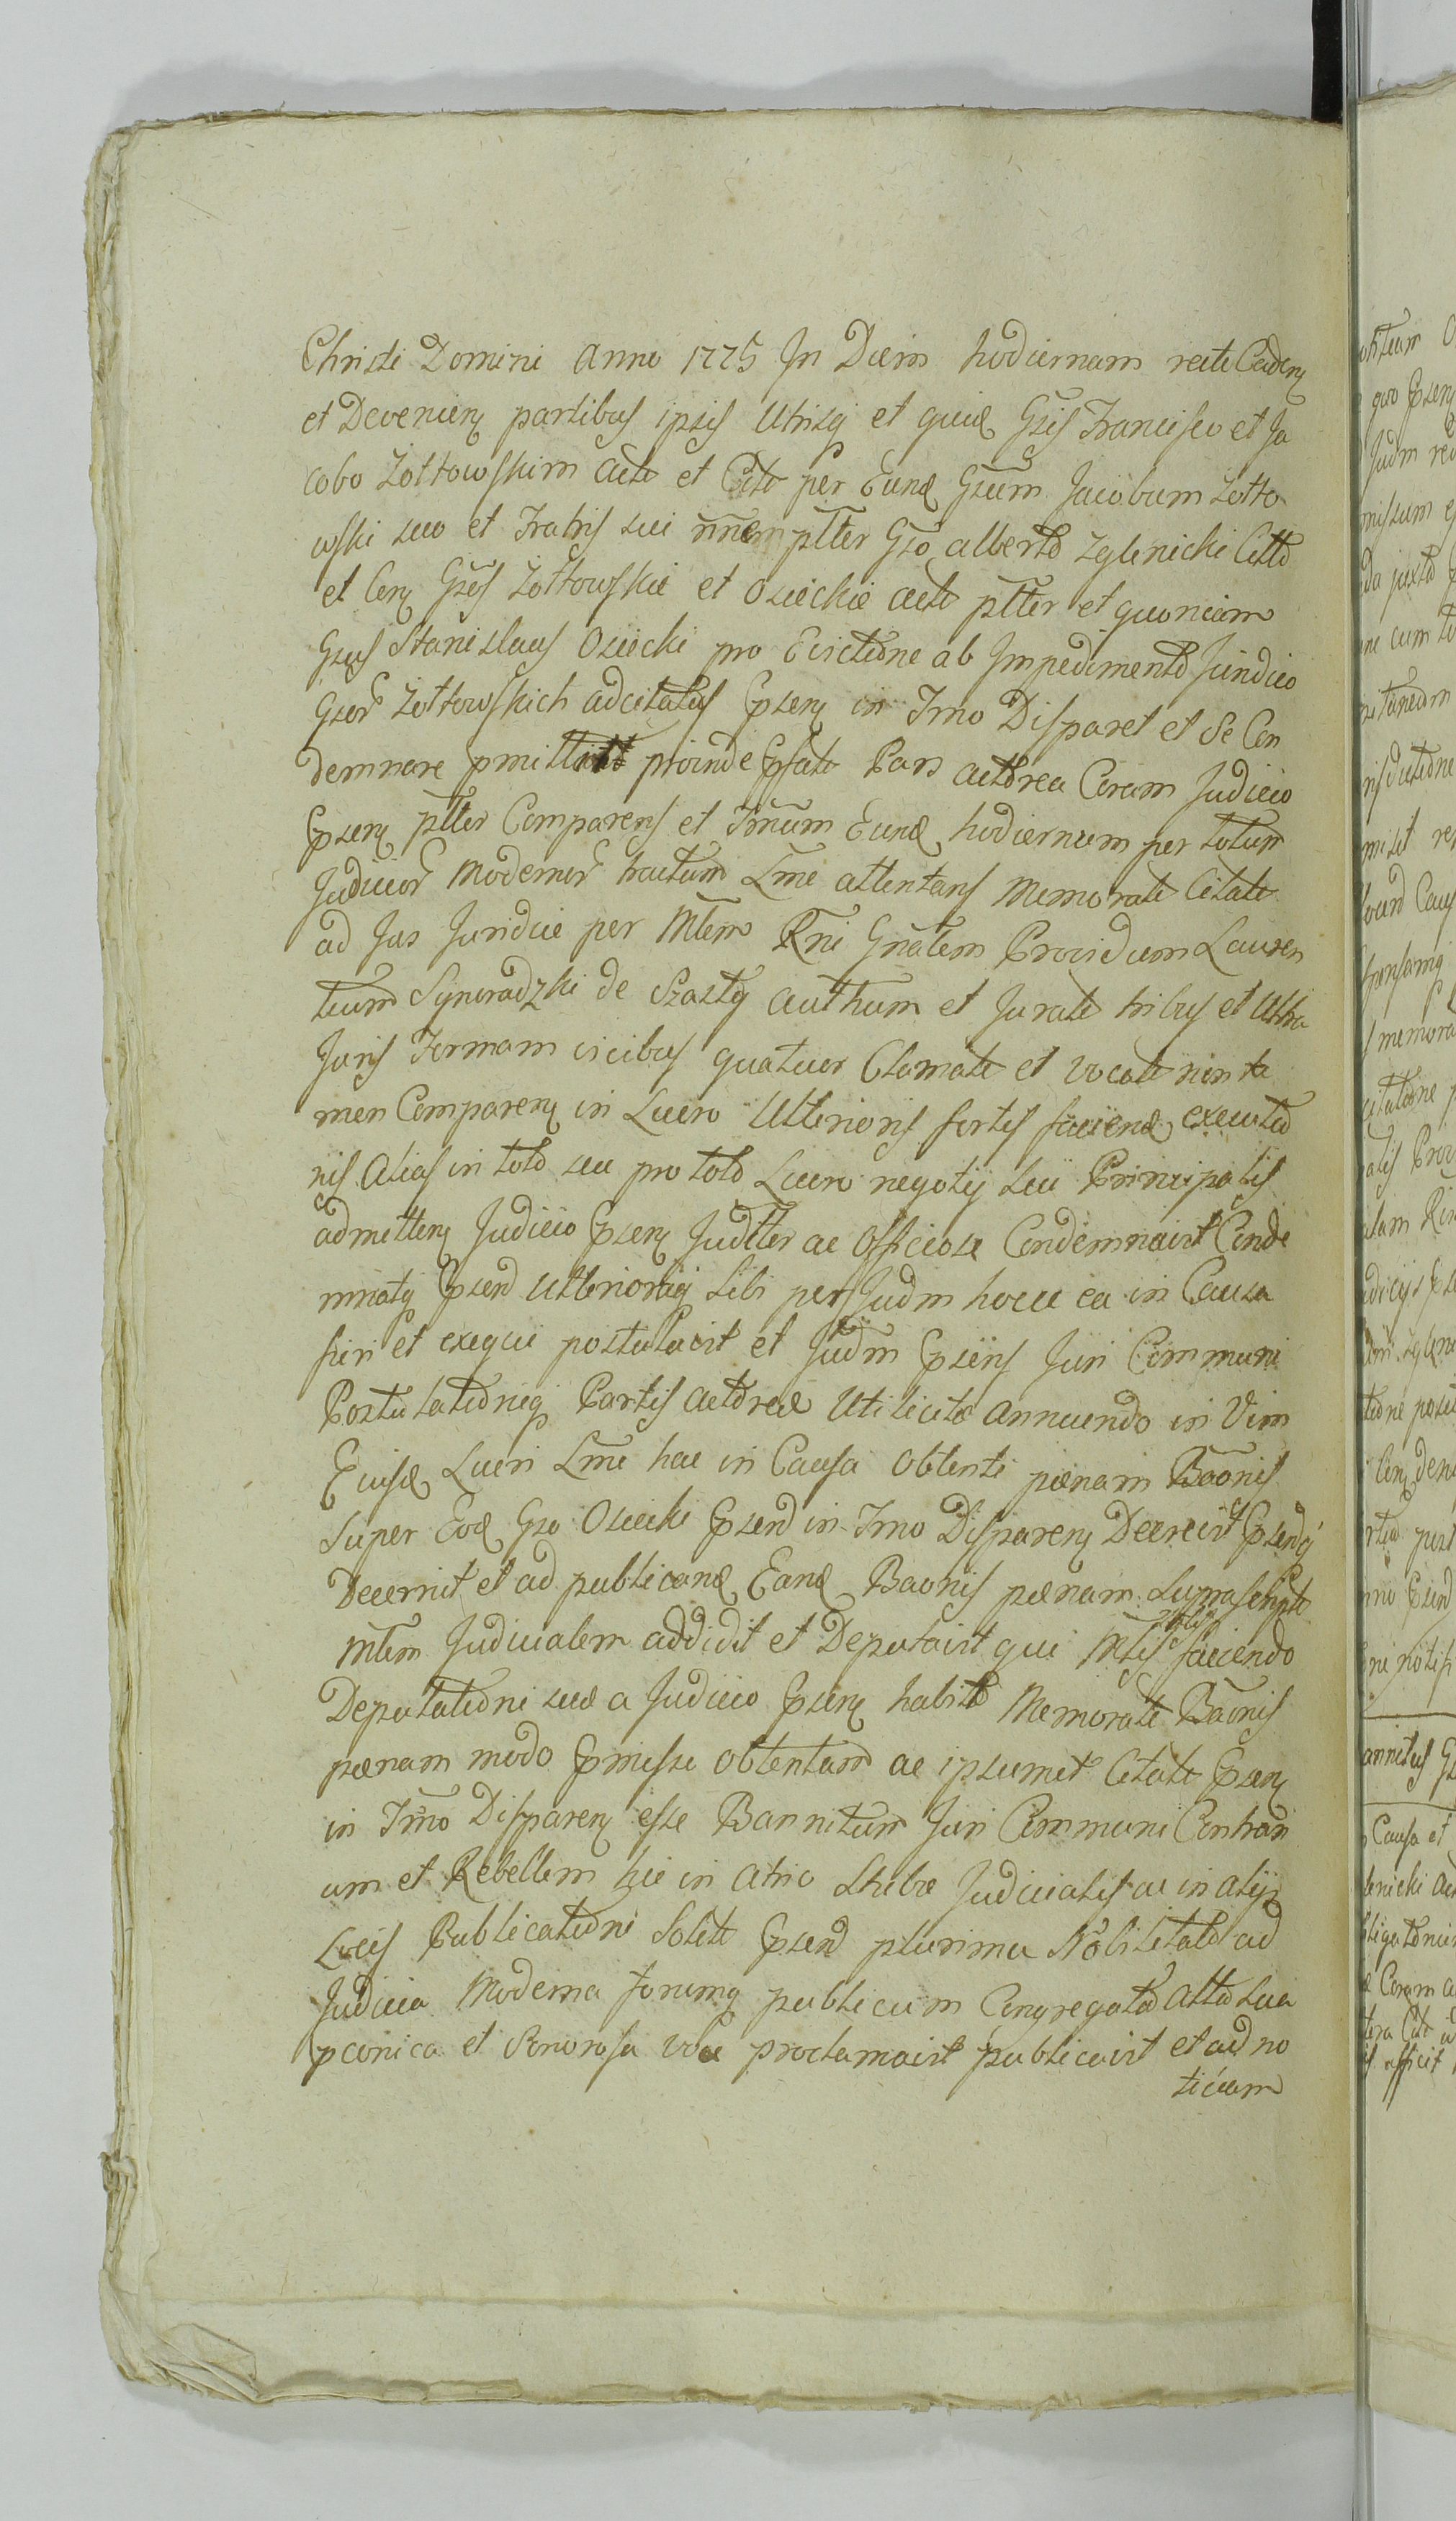 Christi Domini Anno 1775 In Diem hodiernam recte Caden
et Devenien partibus ipsis Utrisq et quid Gsis Francisco et Ja
cobo Zołtowskim acto et Cito per Eund Gsum Jacobum Zołto
wski suo et Fratris sui nnem ptter Gso Alberto Zglinicki Citto
et Con Gsos Zołtowskie et Osieckie acto ptter et quoniam
Gsus Stanislaus Osiecki pro Evictione ab Impedimento Juridico
Gsor Zołtowskich adcitatus Psens in Tmo Disparet et se Con
demnare pmittit proinde Psate Pars actorea Coram Judicio
Psens ptter Comparens et Tmum Eund hodiernum per totum
Judicior Modernor tractum Lme attentans Memorate Citate
ad Jus Juridice per Mtem Rni Gnatem Providum Lauren
tium Syneradzki de Szasty authum et Jurate tribus et Ultra
Juris Formam vicibus quatuor Clamate et vocate non ta
men Comparen in Lucro Ulterioris fortis faciend executio
nis Alias in toto seu pro toto Lucro negotij sui Principalis
admitten Judicio Psens Judtter ac Officiose Condemnavit Conde
mnatq Psend Ulteriorig Sibi per Judm hocce ea in Causa
fieri et exequi postulavit et Judm Psens Juri Communi
Postulationiq Partis actoreæ Utilicite annuendo in Vim
Eiusd Lucri Lme hac in Causa Obtenti pænam Baonis
Super Eod Gso Osiecki Psend in Tmo Disparen Decrevit Psendq
Decernit et ad publicand Eand Baonis pænam suprascripte
Mtem Judicialem addidit et Deputavit qui Mtis faciendo
Deputationi suæ a Judicio Psens habito Memorate Baonis
pænam modo Pmisse obtentam ac ipsumet Citate Psens
in Tmo Disparen esse Bannitum Juri Communi Contrari
um et Rebellem hic in atrio Stubæ Judicialis ac in alijs
Locis Publicationi Solite Psend plurima Nobilitate ad
Judicia Moderna forumq publicum Congregata alta sua
pconica et Sonorosa voce proclamavit publicavit et ad no
ticiam